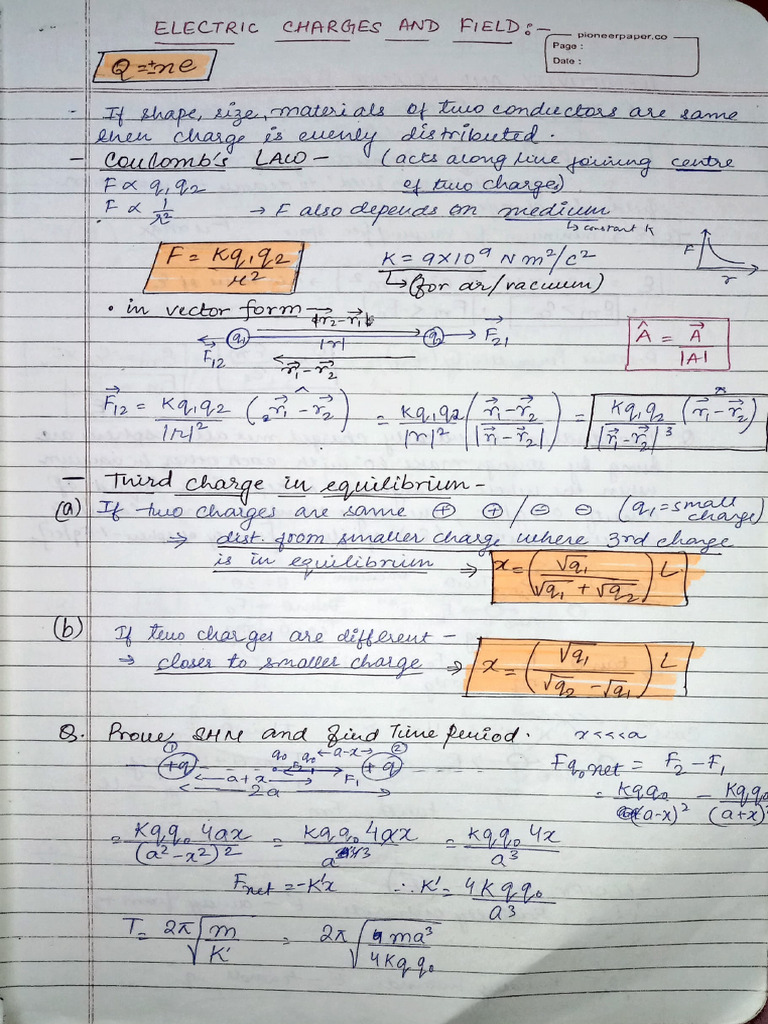 ELECTRIC CHARGES AND FIELD:-
pioneerpaper.co
Page :
Date :
Q=±ne
- If shape, size, materials of two conductors are same
then charge is evenly distributed.
- Coulomb's LAW - (acts along line joining centre
of two charges)
F ∝ q₁q₂
F ∝ 1/r² → F also depends on medium
↳ constant K
F = Kq₁q₂/r²
K = 9×10⁹ Nm²/C²
↳ (for air/vacuum)
F
r
• in vector form -
|r⃗₂-r⃗₁|
q₁ q₂ F⃗₂₁
F⃗₁₂ |r|
r⃗₁-r⃗₂
Â = A⃗/|A|
F⃗₁₂ = Kq₁q₂/|r|² (r⃗₁-r⃗₂) = Kq₁q₂/|r|² (r⃗₁-r⃗₂/|r⃗₁-r⃗₂|) = Kq₁q₂/|r⃗₁-r⃗₂|³ (r⃗₁-r⃗₂)
- Third charge in equilibrium -
(a) If two charges are same ⊕ ⊕ / ⊖ ⊖ (q₁=small charge)
→ dist. from smaller charge where 3rd charge
is in equilibrium ⇒ x = (√q₁/√q₁+√q₂) L
(b) If two charges are different -
→ closer to smaller charge ⇒ x = (√q₁/√q₂-√q₁) L
Q. Prove SHM and find Time period. x<<<a
① q₀ q₀ ←a-x→ ②
+q F₂ F₁ +q
←a+x→
2a
Fq₀net = F₂ - F₁
= Kqq₀/(a-x)² - Kqq₀/(a+x)²
= Kqq₀4ax/(a²-x²)² = Kqq₀4ax/a = Kqq₀4x/a³
Fnet = -K'x ∴ K' = 4Kqq₀/a³
T = 2π√m/K' = 2π√ma³/4Kqq₀